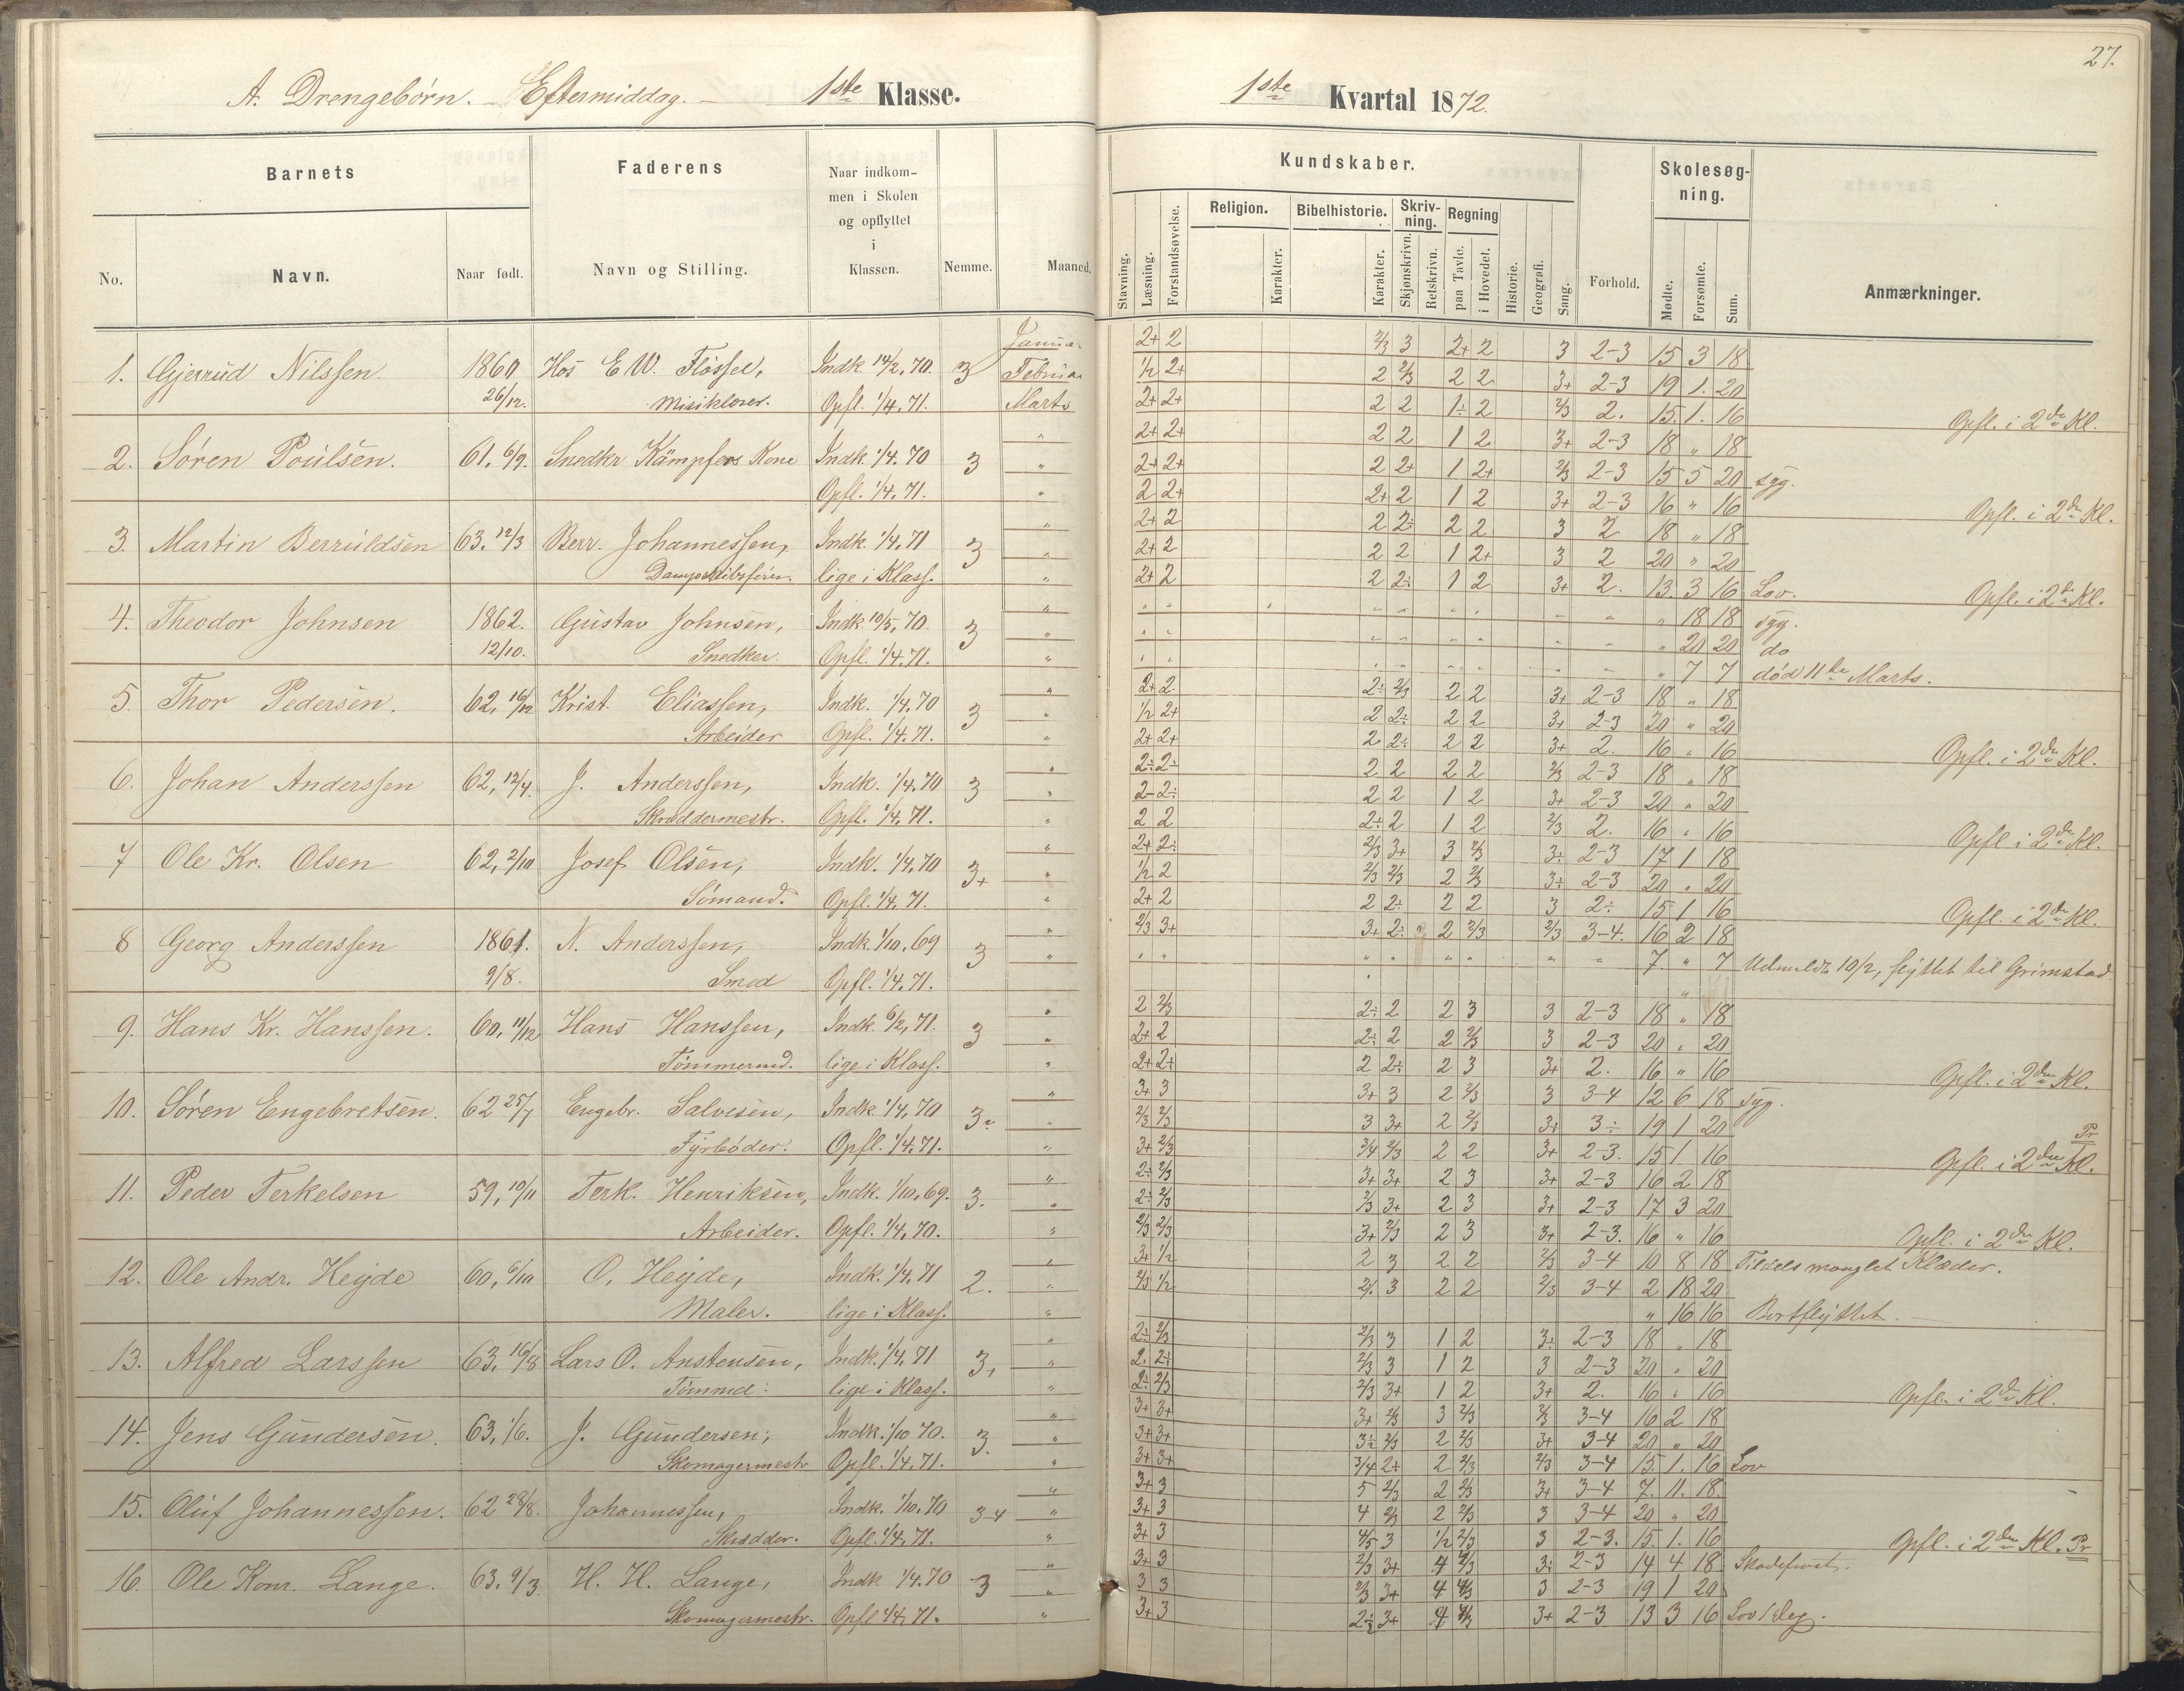 27.
A. Drengebørn. - Eftermiddag. - 1ste Klasse.
1ste Kvartal 1872.
Barnets
Faderens
Naar indkom-
men i Skolen
og opflyttet
i
Klassen.
No. Navn. Naar født. Navn og Stilling. Nemme. Maaned.
Kundskaber.
Skolesøg-
ning.
Religion. Bibelhistorie. Skriv-
ning. Regning
Stavning. Læsning. Forstandsøvelse. Karakter. Karakter. Skjønskrivn. Retskrivn. paa Tavle. i Hovedet. Historie. Geografi. Sang. Forhold. Mødte. Forsømte. Sum. Anmærkninger.
Januar
1. Gjerrud Nilssen. 1860 Hos E W. Flössel, Indk. 14/2, 70. 3 Februar
26/12. Opfl. 1/4, 71. Marts
2. Søren Poulsen. 61, 6/9. Snedkr Kämpfers Kone Indk. 1/4. 70 3 "
Opfl. 1/4, 71. "
3. Martin Berruldsen 63. 12/3 Berr. Johannessen, Indk. 1/4. 71 3 "
Dampskibsfører. lige i Klass. "
4. Theodor Johnsen 1862. Gustav Johnsen, Indk. 10/5, 70. 3 "
12/10. Snedker. Opfl. 1/4. 71. "
5. Thor Pedersen. 62, 16/12 Krist. Eliassen, Indk. 1/4. 70 3 "
Arbeider Opfl. 1/4. 71. "
6. Johan Anderssen 62, 12/4. J. Anderssen, Indk. 1/4. 70 3 "
Skræddermestr. Opfl. 1/4. 71. "
7 Ole Kr. Olsen 62, 2/10 Josef Olsen, Indk. 1/4. 70 3+ "
Sømand. Opfl. 1/4. 71. "
8 Georg Anderssen 1861. N. Anderssen, Indk. 1/10, 69 3 "
9/8. Smed Opfl. 1/4. 71. "
9. Hans Kr. Hanssen. 60, 11/12 Hans Hanssen, Indk. 6/2, 71. 3 "
Tømmermd. lige i Klass. "
10. Søren Engebretsen. 62 25/7 Engebr. Salvesen, Indk. 1/4, 70 "
Fyrbøder. Opfl. 1/4. 71. "
11. Peder Terkelsen 59, 10/11 Terk. Henriksen, Indk. 1/10, 69. 3. "
Arbeider. Opfl. 1/4, 70. "
12. Ole Andr. Heyde 60, 6/10 O. Heyde, Indk. 1/4. 71 2. "
Maler. lige i Klass. "
13. Alfred Larssen 63, 16/8 Lars O. Anstensen, Indk. 1/4. 71 3+ "
Tømmd: lige i Klass. "
14. Jens Gundersen. 63, 1/6. J. Gundersen, Indk. 1/10 70. 3. "
Skomagermestr Opfl. 1/4. 71. "
15. Oluf Johannessen. 62 28/8. Johannessen, Indk. 1/10. 70 3-4 "
Skrædder. Opfl. 1/4. 71. "
16. Ole Konr. Lange. 63. 9/3. H. H. Lange, Indk 1/4. 70 3 "
Skomagermestr. Opfl 1/4. 71. "
2+ 2 2/3 3 2+ 2 3 2-3 15 3 18
1/2 2+ 2 2/3 2 2 3+ 2-3 19 1. 20
2+ 2+ 2 2 1÷ 2 2/3 2. 15. 1. 16 Opfl. i 2den Kl.
2+ 2+ 2 2 1 2 3+ 2-3 18 " 18
2+ 2+ 2 2+ 1 2+ 2/3 2-3 15 5 20 syg.
2 2+ 2+ 2 1 2 3+ 2-3 16 " 16 Opfl. i 2den Kl.
2+ 2 2 2÷ 2 2 3 2 18 " 18
2+ 2 2 2 1 2+ 3 2 20 " 20
2+ 2 2 2÷ 1 2 3+ 2. 13. 3 16 Lov. Opfl. i 2den Kl.
" 18 18 syg.
" 20 20 do
" 7 7 død 11te Marts.
2+ 2. 2÷ 2/3 2 2 3+ 2-3 18 " 18
1/2 2+ 2 2÷ 2 2 3+ 2-3 20 " 20
2+ 2+ 2 2÷ 2 2 3+ 2. 16 " 16 Opfl. i 2den Kl.
2÷ 2÷ 2 2 2 2 2/3 2-3 18 " 18
2- 2÷ 2 2 1 2 3+ 2-3 20 " 20
2 2 2÷ 2 1 2 2/3 2. 16 " 16 Opfl. i 2den Kl.
2+ 2÷ 2/3 3+ 3 2/3 3÷ 2-3 17 1 18
1/2 2 2/3 2/3 2 2/3 3÷ 2-3 20 " 20
2+ 2 2 2÷ 2 2 3 2÷ 15 1 16 Opfl. i 2den Kl.
2/3 3+ 3+ 2÷ " 2 2/3 2/3 3-4. 16 2 18
" " " " " " " " 7. " 7 Udmeldt 10/2, flyttet til Grimstad
2 2/3 2÷ 2 2 3 3 2-3 18 " 18
2+ 2 2÷ 2 2 2/3 3 2-3 20 " 20
2+ 2+ 2 2÷ 2 3 3+ 2. 16 " 16 Opfl. i 2den Kl.
3+ 3 3+ 3 2 2/3 3 3-4 12 6 18 Syg.
2/3 2/3 3 3+ 2 2/3 3+ 3÷ 19 1 20
3+ 2/3 3/4 2/3 2 2 3+ 2-3. 15 1 16 Opfl. i 2den Kl. Pr
2÷ 2/3 3+ 3+ 2 3 3+ 2-3 16 2 18
2÷ 2/3 2/3 3+ 2 3 3+ 2-3 17 3 20
2/3 2/3 3+ 2/3 2 3 3+ 2-3. 16 " 16 Opfl. i 2den Kl.
3+ 1/2 2 3 2 2 2/3 3-4 10 8 18 Tildels manglet Klæder.
2/3 1/2 2/. 3 2 2 2/3 3-4 2 18 20
" 16 16 Bortflyttet.
2÷ 2/3 2/3 3 1 2 3÷ 2-3 18 " 18
2. 2÷ 2/3 3 1 2 3 2-3 20 " 20
2÷ 2/3 2/3 3+ 1 2 3+ 2. 16 " 16 Opfl. i 2den Kl.
3+ 3+ 3+ 2/3 3 2/3 2/3 3-4 16 2 18
3+ 3+ 3÷ 2/3 2 2/3 3+ 3-4 20 " 20
3+ 3+ 3/4 2+ 2 2/3 2/3 3-4 15. 1. 16 Lov
3+ 3 5 2/3 2 2/3 3+ 3-4 7. 11. 18
3+ 3 4 2/3 2 2/3 3 3-4 20 " 20
3+ 3 4/5 3 1/2 2/3 3 2-3. 15. 1. 16 Opfl. i 2den Kl. Pr
3+ 3 2/3 3+ 4 3÷ 2-3 14 4 18
3 3 2/3 3+ 4 3 2-3 19 1 20
3+ 3 2÷ 3+ 4 3+ 2-3 13 3 16 Lov